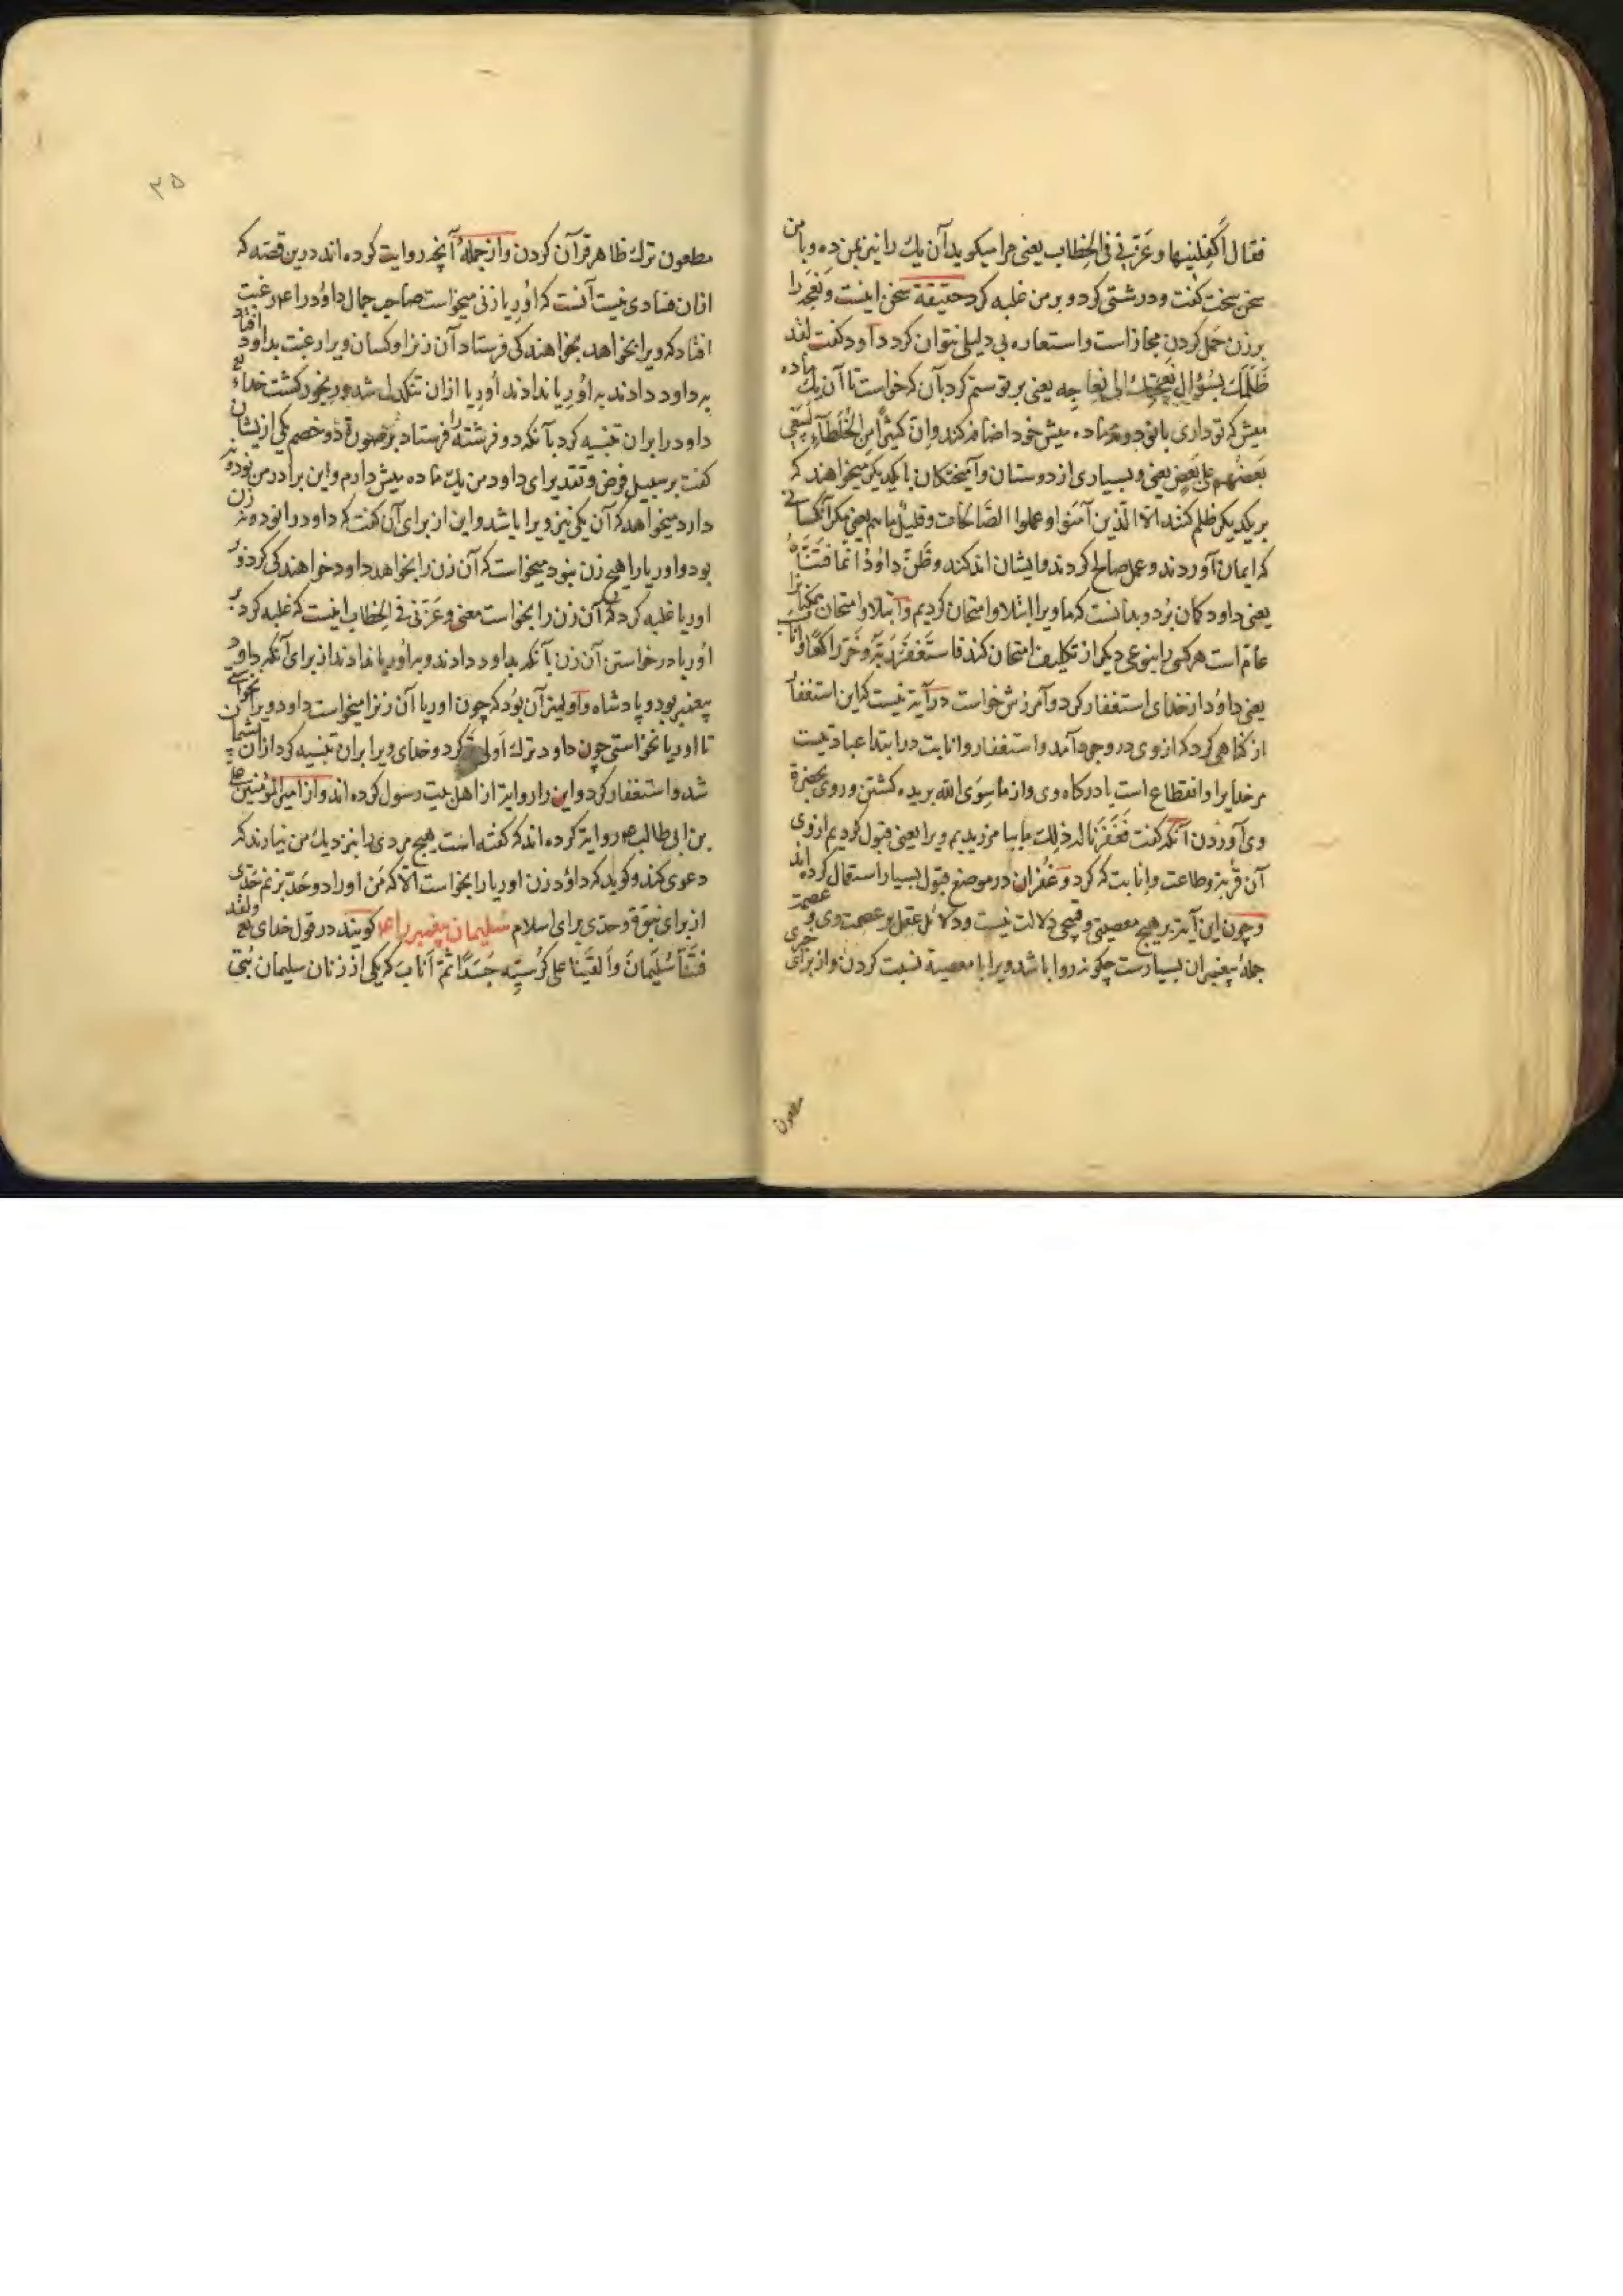 فقال اَكفِلْنِيها وعَزَّنِي فِي الخِطاب يعنی مرا میکوید آن یك را نیز بمن ده وبا من
سخن سخت کفت ودرشتی کرد و بر من غلبه کرد حقیقة سخن اینست ونَعجَه را
بر زن حَمل کردن مجازاست واستعاره بی دلیلی نتوان کرد داود کفت لقد
ظَلَمَكَ بِسُؤالِ نَعْجَتِكَ اِلی نِعاجِه یعنی بر تو ستم کرد بآن که خواست تا آن یك ماده
میش که تو داری با نود و نه ماده میش خود اضافه کند وانّ کثیراً من الخُلَطَآءِ لَیَبغی
بَعضُهم علی بَعضٍ یعنی وبسیاری از دوستان وآمیختکان با یکدیکر میخواهند که
بر یکدیکر ظلم کنند الّا الّذین آمنوا وعملوا الصّالحات وقلیلٌ ما هم یعنی مکر آنکسانی
که ایمان آوردند وعمل صالح کردند وایشان اندکند وظَنَّ داوُدُ اَنّما فَتَنَّاهُ
یعنی داود کمان بُرد وبدانست که ما ویرا ابتلا وامتحان کردیم وابتلا وامتحان مکلّفانرا
عام است هر کسی را بنوعی دیکر از تکلیف امتحان کند فاستَغفَرَ رَبَّهُ وخَرَّ راکعًا واناب
یعنی داوُد از خدای استغفار کرد وآمرزش خواست در آیة نیست که این استغفار
از کناهی کرد که از وی در وجود آمد واستغفار وانابت در ابتدا عبادتیست
مر خدایرا وانقطاع است با درکاه وی واز ما سِوَی الله بریده کشتن وروی بحضرة
وی آوردن آنکه کفت فَغَفَرْنا له ذلِك ما بیامرزیدیم ویرا یعنی قبول کردیم از وی
آن قربة وطاعت وانابت که کرد وغُفران در موضع قبول بسیار استعمال کرده اند
وچون این آیة بر هیچ معصیتی وقبیحی دلالت نیست ودلائل عقل بر عصمت وی وعصمت
جملهٔ پیغمبران بسیارست چکونه روا باشد ویرا با معصیة نسبت کردن واز برای خبری
مطعون
۳۵
مطعون ترك ظاهر قرآن کردن واز جملهٔ آنچه روایت کرده اند درین قصّه که
ازان فسادی نیست آنست که اُورِیا زنی میخواست صاحب جمال داوُد را ع م رغبت
افتاد که ویرا بخواهد بخواهندکی فرستاد آن زنرا وکسان ویرا رغبت بداود افتاد
به داود دادند به اُورِیا ندادند اُورِیا ازان تنکدل شد ورنجور کشت خدای تع
داود را بران تنبیه کرد بآنکه دو فرشته را فرستاد بر صورة دو خصم یکی ازیشان
کفت بر سبیل فرض وتقدیر ای داود من یك ماده میش دارم واین برادر من نود ونه
دارد میخواهد که آن یکی نیز ویرا باشد واین از برای آن کفت که داود را نود ونه زن
بود واوریا را هیچ زن نبود میخواست که آن زن را بخواهد داود خواهندکی کرد وبر
اوریا غلبه کرد که آن زن را بخواست معنی وعَزَّنی فی الخِطاب اینست که غلبه کرد بر
اُوریا در خواستن آن زن بآنکه بداود دادند وبه اُوریا ندادند از برای آنکه داود
پیغمبر بود وپادشاه واولیتر آن بُود که چون اوریا آن زنرا میخواست داود ویرا نخواستی
تا اوریا بخواستی چون داود ترك اَولی کرد وخدای ویرا بران تنبیه کرد ازان پشیمان
شد واستغفار کرد واین را روایة از اهل بیت رسول کرده اند واز امیر المؤمنین علی
بن ابی طالب ع م روایة کرده اند که کفته است هیچ مردی را بنزدیك من نیارند که
دعوی کند وکوید که داؤد زن اوریا را بخواست الّا که من اورا دو حدّ بزنم حدّی
از برای نبوّة وحدّی برای اسلام سُلیمان پیغمبر را ع م کویند در قول خدای تع ولقد
فَتَنّا سُلَیمانَ واَلقَینا علی کُرسِیِّه جَسَدًا ثمّ اَنابَ که یکی از زنان سلیمان بُتی